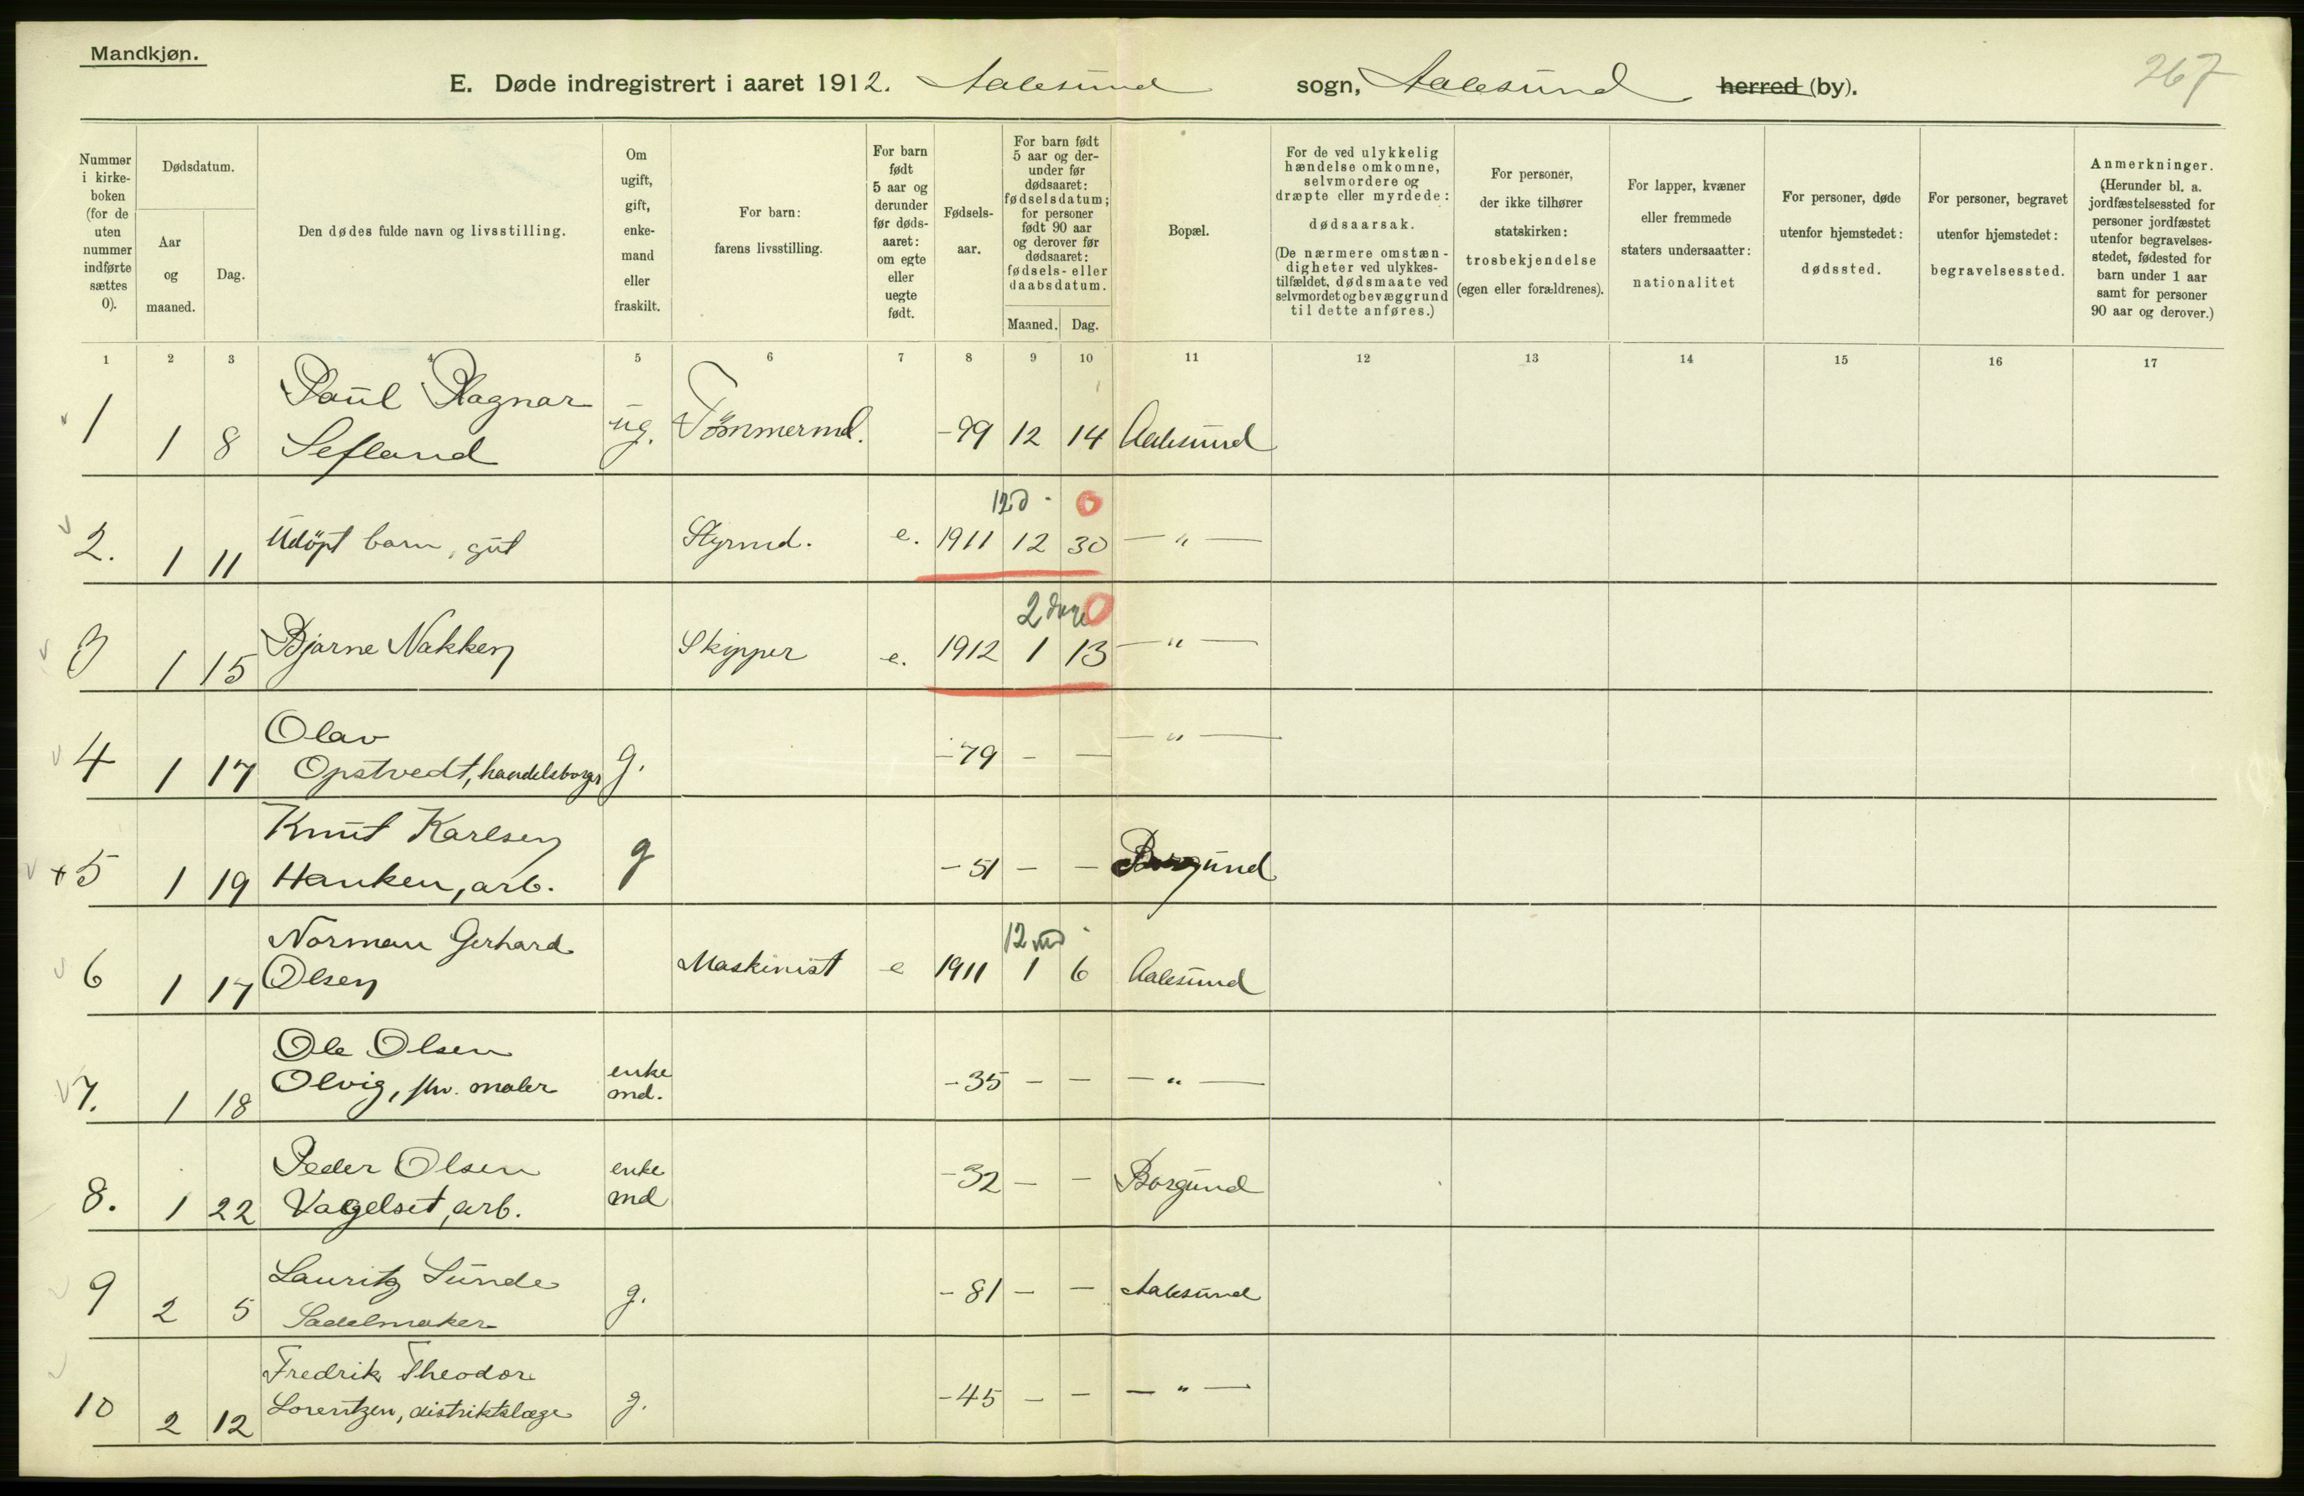 Mandkjøn.
E. Døde indregistrert i aaret 1912. Aalesund sogn, Aalesund herred (by).
267
Nummer i kirke-boken (for de uten nummer indførte sættes 0).
Dødsdatum.
Aar og maaned.
Dag.
Den dødes fulde navn og livsstilling.
Om ugift, gift, enke-mand eller fraskilt.
For barn: farens livsstilling.
For barn født 5 aar og derunder før døds-aaret: om egte eller uegte født.
Fødsels-aar.
For barn født 5 aar og der-under før dødsaaret: fødselsdatum; for personer født 90 aar og derover før dødsaaret: fødsels- eller daabsdatum.
Maaned. Dag.
Bopæl.
For de ved ulykkelig hændelse omkomne, selvmordere og dræpte eller myrdede: dødsaarsak. (De nærmere omstæn-digheter ved ulykkes-tilfældet, dødsmaate ved selvmordet og bevæggrund til dette anføres.)
For personer, der ikke tilhører statskirken: trosbekjendelse (egen eller forældrenes).
For lapper, kvæner eller fremmede staters undersaatter: nationalitet
For personer, døde utenfor hjemstedet: dødssted.
For personer, begravet utenfor hjemstedet: begravelsessted.
Anmerkninger. (Herunder bl. a. jordfæstelsessted for personer jordfæstet utenfor begravelses-stedet, fødested for barn under 1 aar samt for personer 90 aar og derover.)
1 2 3 4 5 6 7 8 9 10 11 12 13 14 15 16 17
1 1 8 Paul Ragnar Sefland ug. Tømmermd. -99 12 14 Aalesund
12 d 0
2. 1 11 Udøpt barn, gut Styrmd. e. 1911 12 30 — " —
2 dage 0
3 1 15 Bjarne Nakken Skipper e. 1912 1 13 — " —
4 1 17 Olav Opstvedt, handelsborger g. -79 - — — " —
+ 5 1 19 Knut Karlsen Hanken, arb. g -51 - - Borgund
12 md
6 1 17 Norman Gerhard Olsen Maskinist e 1911 1 6 Aalesund
7. 1 18 Ole Olsen Olvig, fhv. maler enke md. -35 - - — " —
8. 1 22 Peder Olsen Vagelset, arb. enke md -32 - - Borgund
9 2 5 Lauritz Sunde Sadelmaker g. -81 - - Aalesund
10 2 12 Fredrik Theodor Lorentzen, distriktslæge g. -45 - - — " —